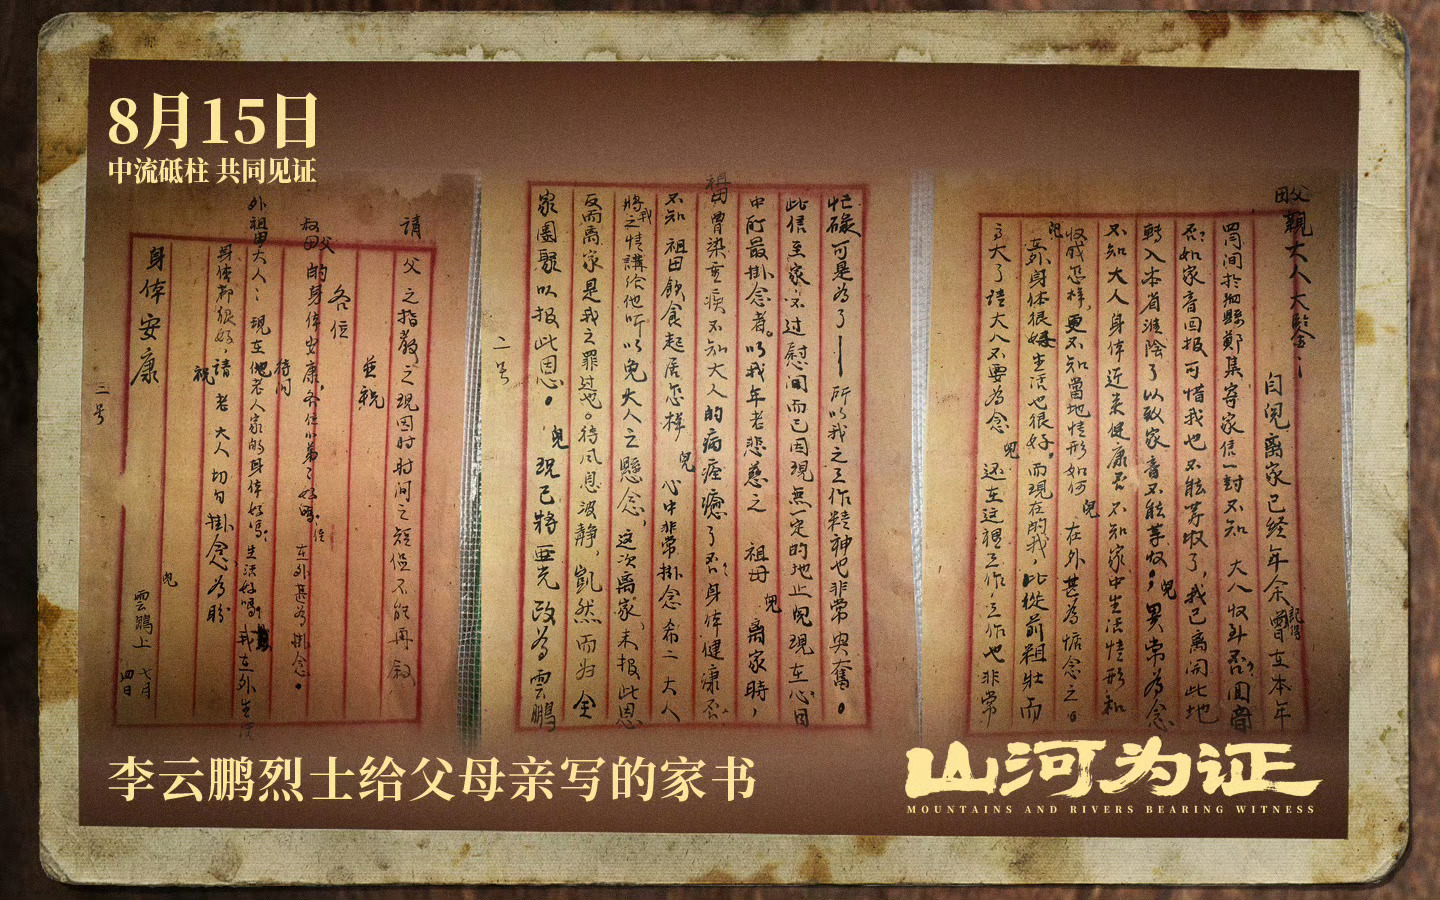 8月15日
中流砥柱 共同见证
父母亲大人大鉴：
自儿离家已经年余
曾记得在本年
四月间于泗縣鄭集寄家信一封不知 大人收到否？
否？如家音回报可惜我也不能等收了，我已离開此地
轉入本省淮陰了以致家音不能等收，兒異常为念
不知大人身体近来健康否 不知家中生活情形和
收成怎样，更不知當地情形如何 兒在外甚为惦念之。
兒身体很好 生活也很好，而現在的我，比從前粗壯而
高大了 請大人不要为念 兒还在这裡工作，工作也非常
忙碌可是为了 所以我之工作精神也非常兴奋。
此信至家，不过慰问而已因現無一定的地址 兒現在心目
中所最掛念者。以我年老悲慈之 祖母 兒离家時，
祖母曾染重疾不知大人的病痊癒了不？身体健康否？
不知 祖母飲食起居怎样 兒心中非常掛念希二大人
將我之情講给他听以免大人之懸念，这次离家，未报此恩
反而离家是我之罪过也。待风息波静，凱然而归全
家團聚以报此恩。 兒現已將 改为雲鵬
二号
請
父之指教之現因时时间之短促不能再叙
並祝
各位
叔父叔母的身体安康，各位小弟弟好嗎，
在外甚为掛念。
待问
外祖母大人：現在他老人家的身体好嗎？生活好嗎？我在外生活
身体都很好，請老大人切勿掛念为盼
祝
身体安康
兒
雲鵬上
七月
四日
三号
李云鹏烈士给父母亲写的家书
山河为证
MOUNTAINS AND RIVERS BEARING WITNESS